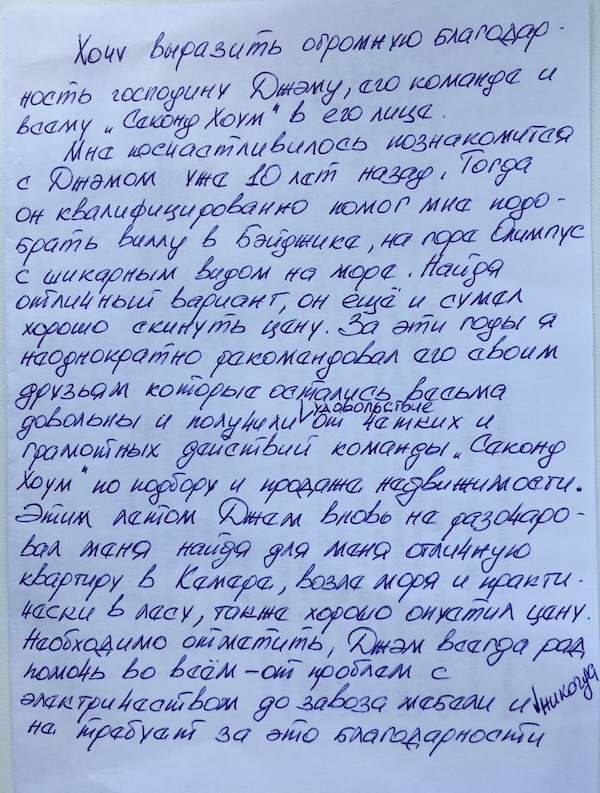 Хочу выразить огромную благодар-
ность господину Джэму, его команде и
всему „Секонд Хоум" в его лице.
Мне посчастливилось познакомится
с Джэмом уже 10 лет назад. Тогда
он квалифицированно помог мне подо-
брать виллу в Бэйджике, на горе Олимпус
с шикарным видом на море. Найдя
отличный вариант, он ещё и сумел
хорошо скинуть цену. За эти годы я
неоднократно рекомендовал его своим
друзьям которые остались весьма
довольны и получили удовольствие от четких и
грамотных действий команды „Секонд
Хоум" по подбору и продаже недвижимости.
Этим летом Джем вновь не разочаро-
вал меня найдя для меня отличную
квартиру в Кемере, возле моря и практи-
чески в лесу, также хорошо опустил цену.
Необходимо отметить, Джэм всегда рад
помочь во всём – от проблем с
электричеством до завоза мебели и никогда
не требует за это благодарности